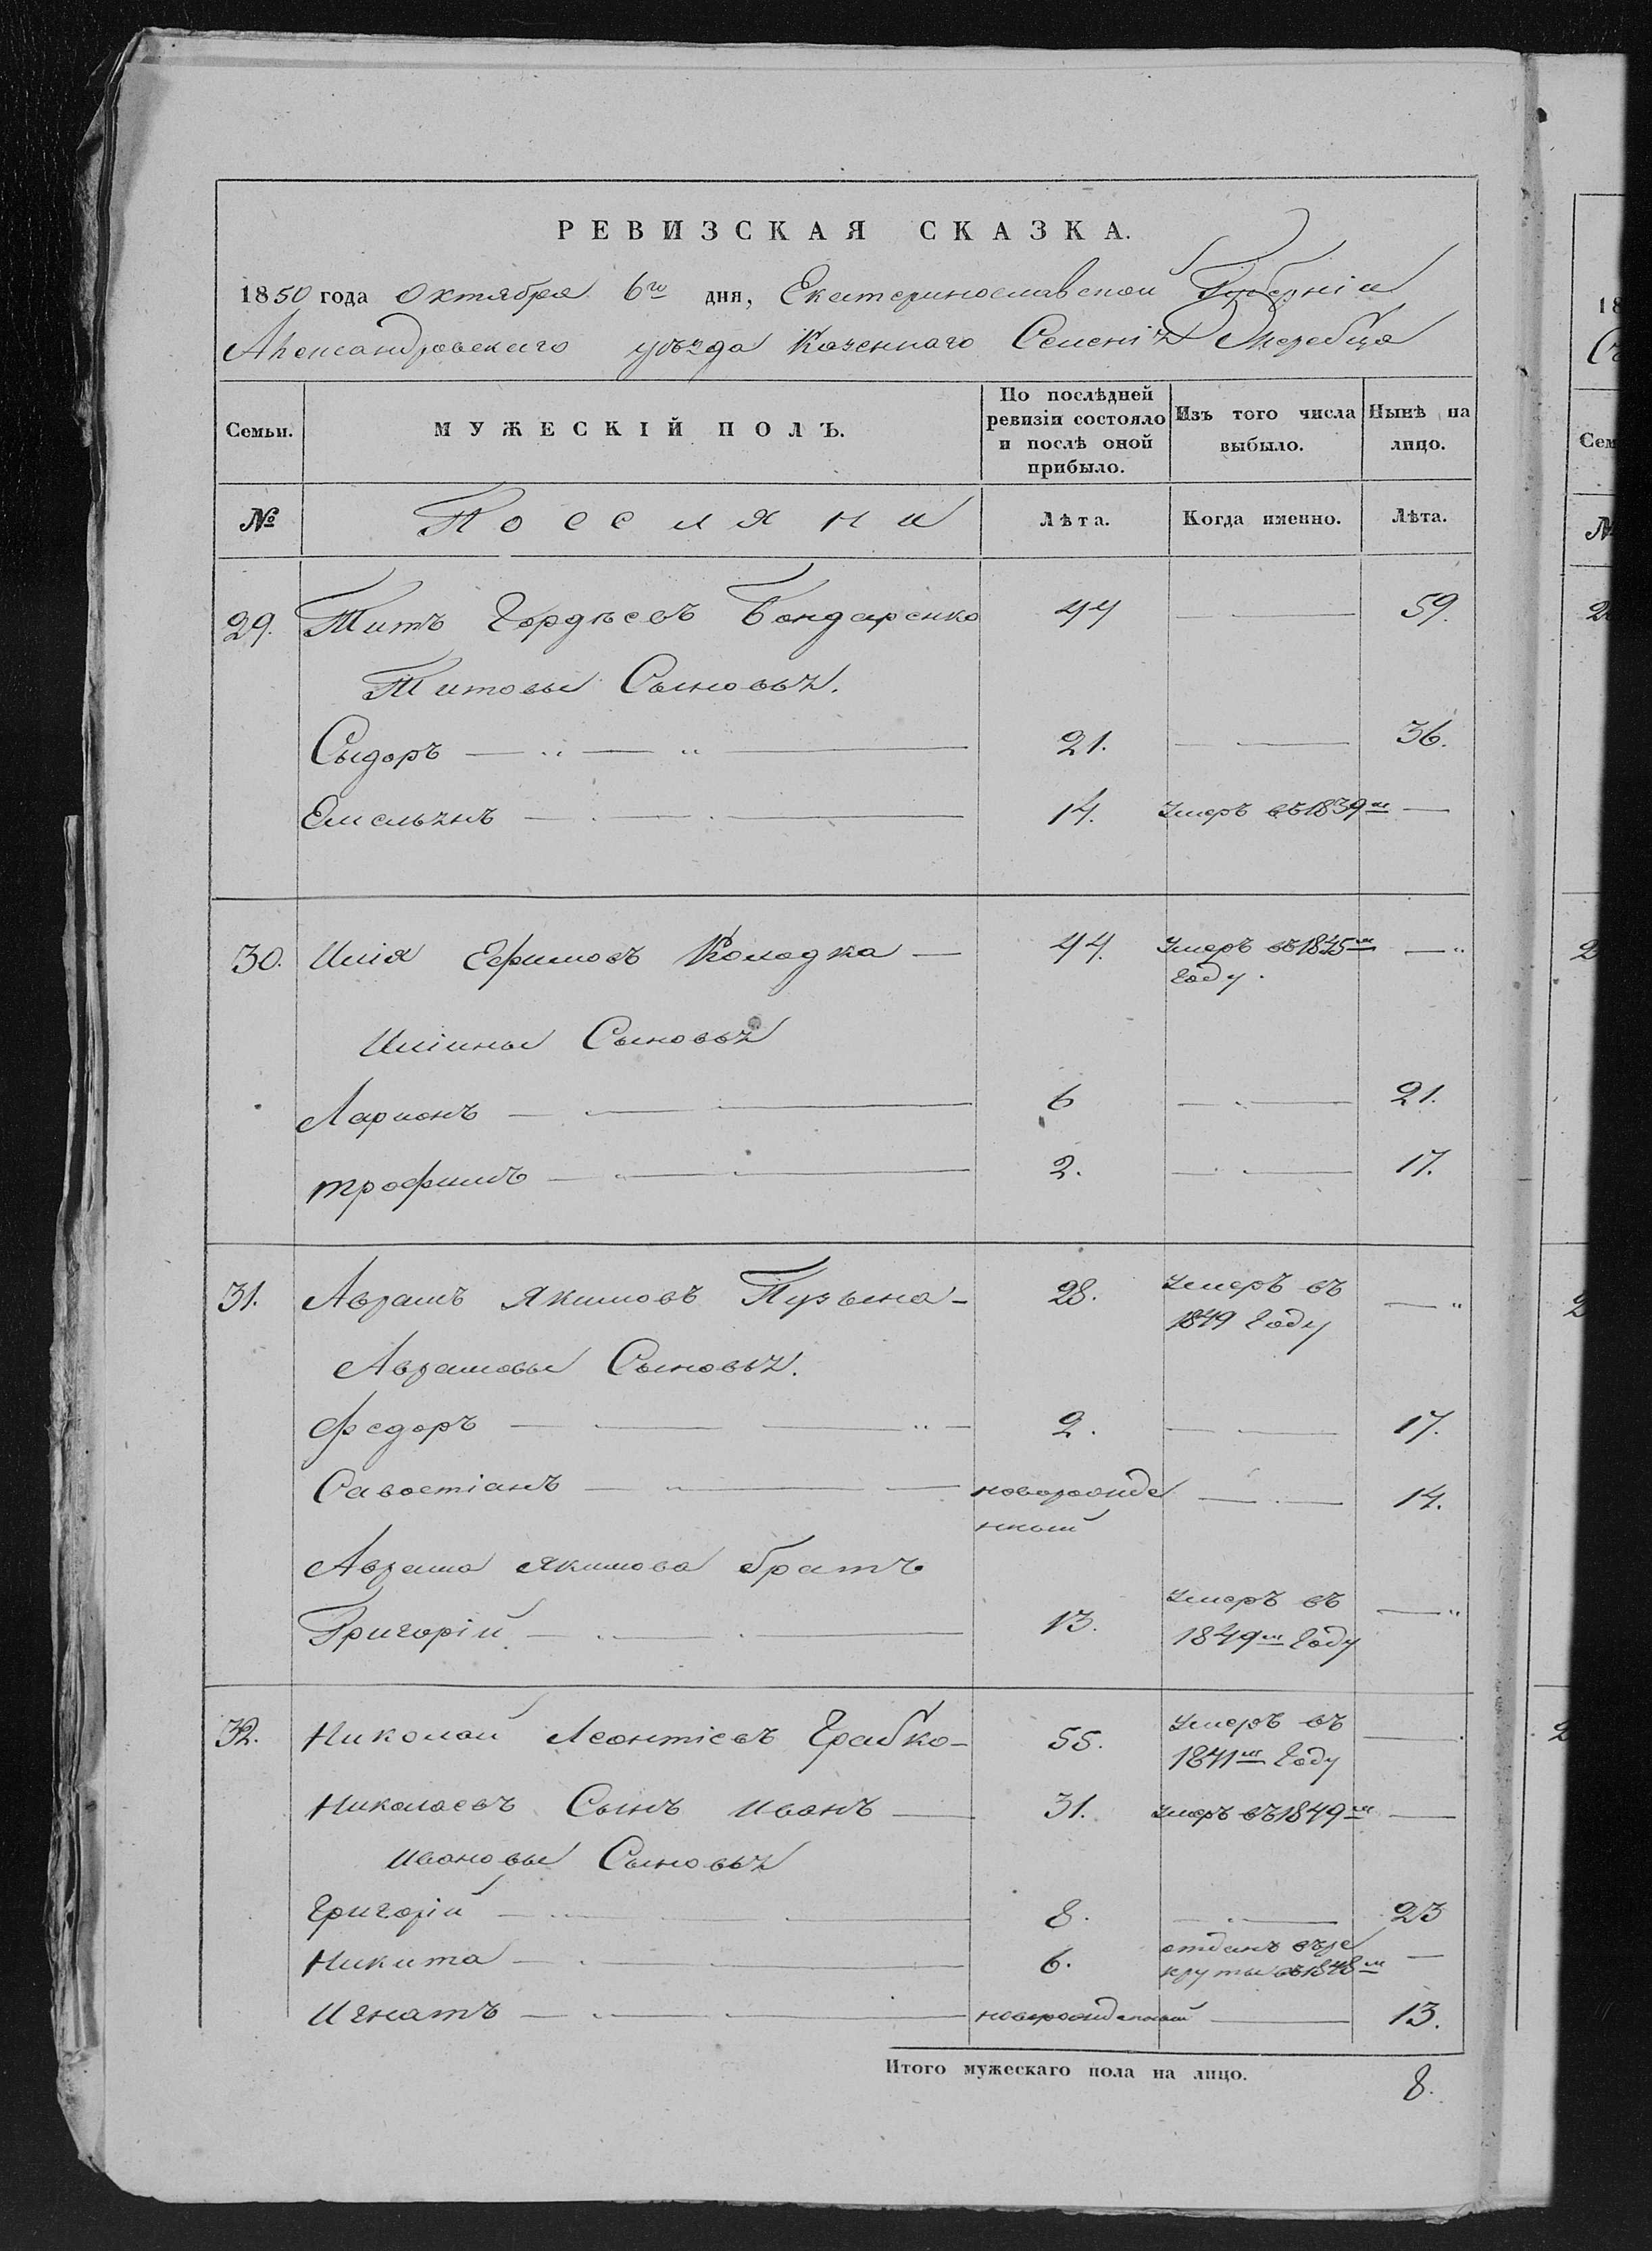 РЕВИЗСКАЯ СКАЗКА.
1850 года Октября 6го дня, Екатеринославской Губерніи
Александровскаго уѣзда Казеннаго Селенія Жеребца
Семьи. МУЖЕСКІЙ ПОЛЪ. По послѣдней ревизіи состояло и послѣ оной прибыло. Изъ того числа выбыло. Нынѣ на лицо.
№ Поселяни Лѣта. Когда именно. Лѣта.
29. Титъ Гордѣевъ Бондаренко 44 59.
Титовы Сыновья.
Сыдоръ 21. 36.
Емельянъ 14. умеръ въ 1839м
30. Илія Ефимовъ Колодка 44. умеръ въ 1845м
году.
Иліины Сыновья
Ларионъ 6 21.
трофимъ 2. 17.
31. Аврамъ Якимовъ Пузына 28. умеръ въ
1849 году
Аврамовы Сыновья.
Федоръ 2. 17.
Савостіанъ новорожде 14.
нный
Аврама Якимова братъ
Григорій 13. умеръ въ
1849м году
32. Николай Леонтіевъ Грабко 55. умеръ въ
1841м году
Николаевъ Сынъ Иванъ 31. умеръ въ 1849м
Ивановы Сыновья
Григорій 8. 23
Никита 6. отданъ въ ре
круты въ 1848м
Игнатъ новорожденный 13.
Итого мужескаго пола на лицо. 8.